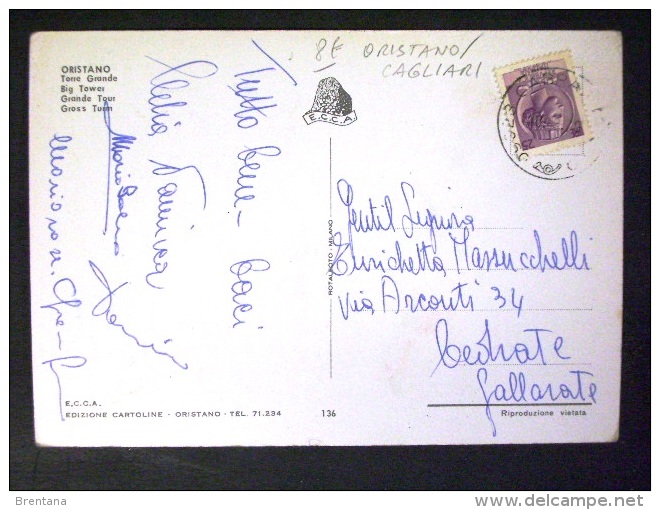 ORISTANO
Torre Grande
Big Tower
Grande Tour
Gross Turm
8€ ORISTANO/
CAGLIARI
E.C.C.A.
Tutto bene -
Baci
ROTALFOTO - MILANO
Gentil Signora
Enrichetta Massucchelli
Via Arconti 34
Cedrate
Gallarate
E.C.C.A.
EDIZIONE CARTOLINE - ORISTANO - TEL. 71.234
136
Riproduzione vietata
Brentana
delcampe.net